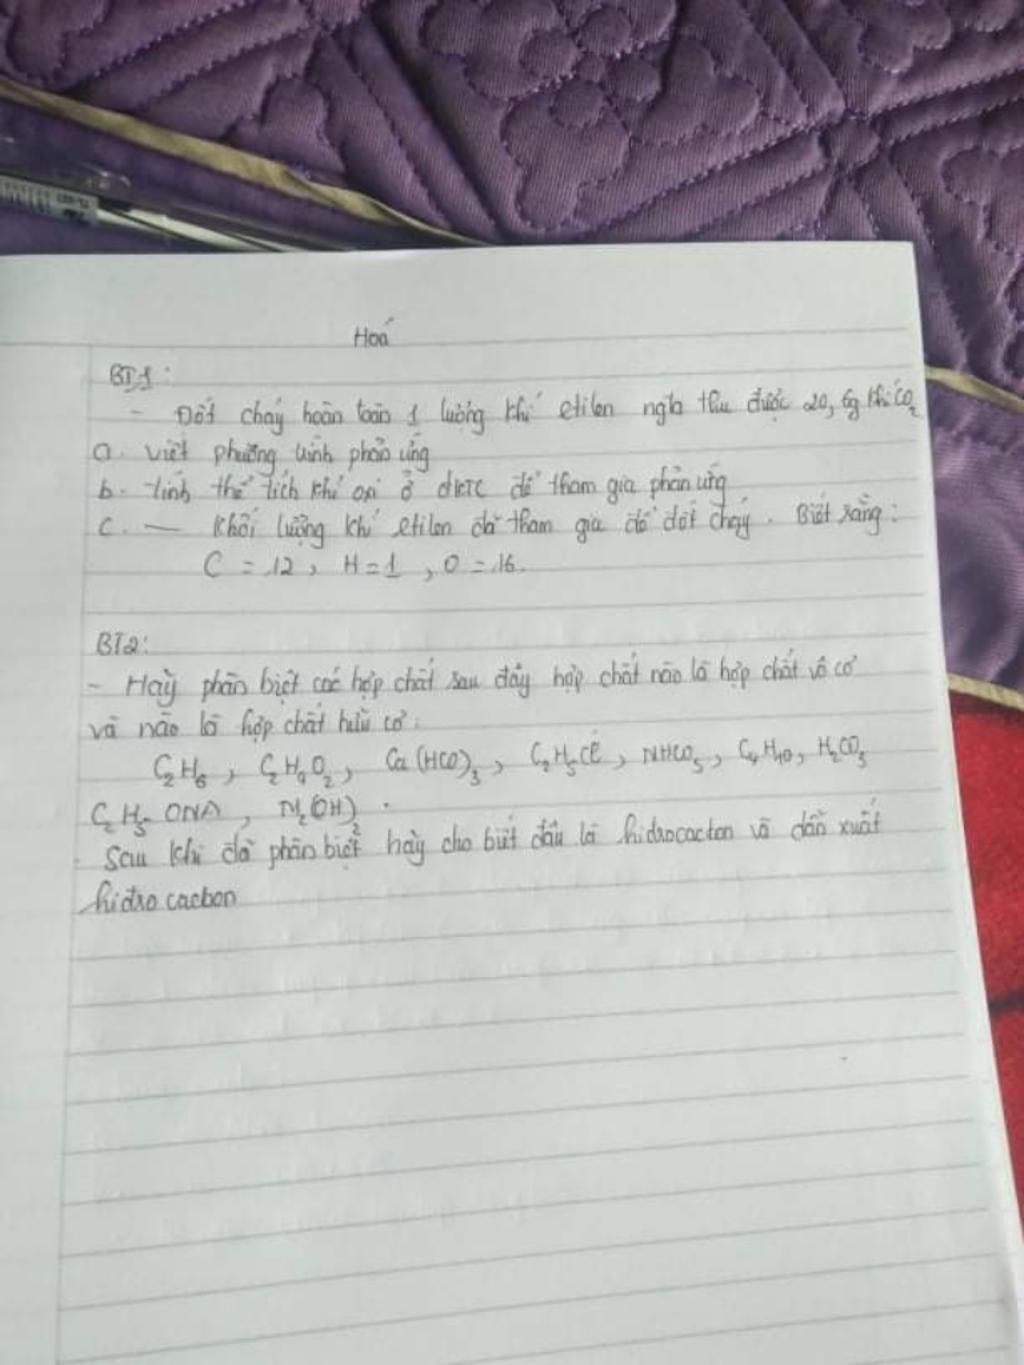 Hoá
BT1:
- Đốt cháy hoàn toàn 1 lượng khí etilen ngta thu được 20,6g khí CO2
a. viết phương trình phản ứng
b. tính thể tích khí oxi ở đktc để tham gia phản ứng
c. — khối lượng khí etilen đã tham gia để đốt cháy. Biết rằng:
C = 12, H = 1, O = 16.
BT2:
- Hãy phân biệt các hợp chất sau đây hợp chất nào là hợp chất vô cơ
và nào là hợp chất hữu cơ:
C2H6, C2H4O2, Ca(HCO)3, C2H5Cl, NHCO3, C4H10, H2CO3
C2H5ONA, M2(OH)2.
Sau khi đã phân biệt hãy cho biết đâu là hidrocacbon và dẫn xuất
hiđro cacbon